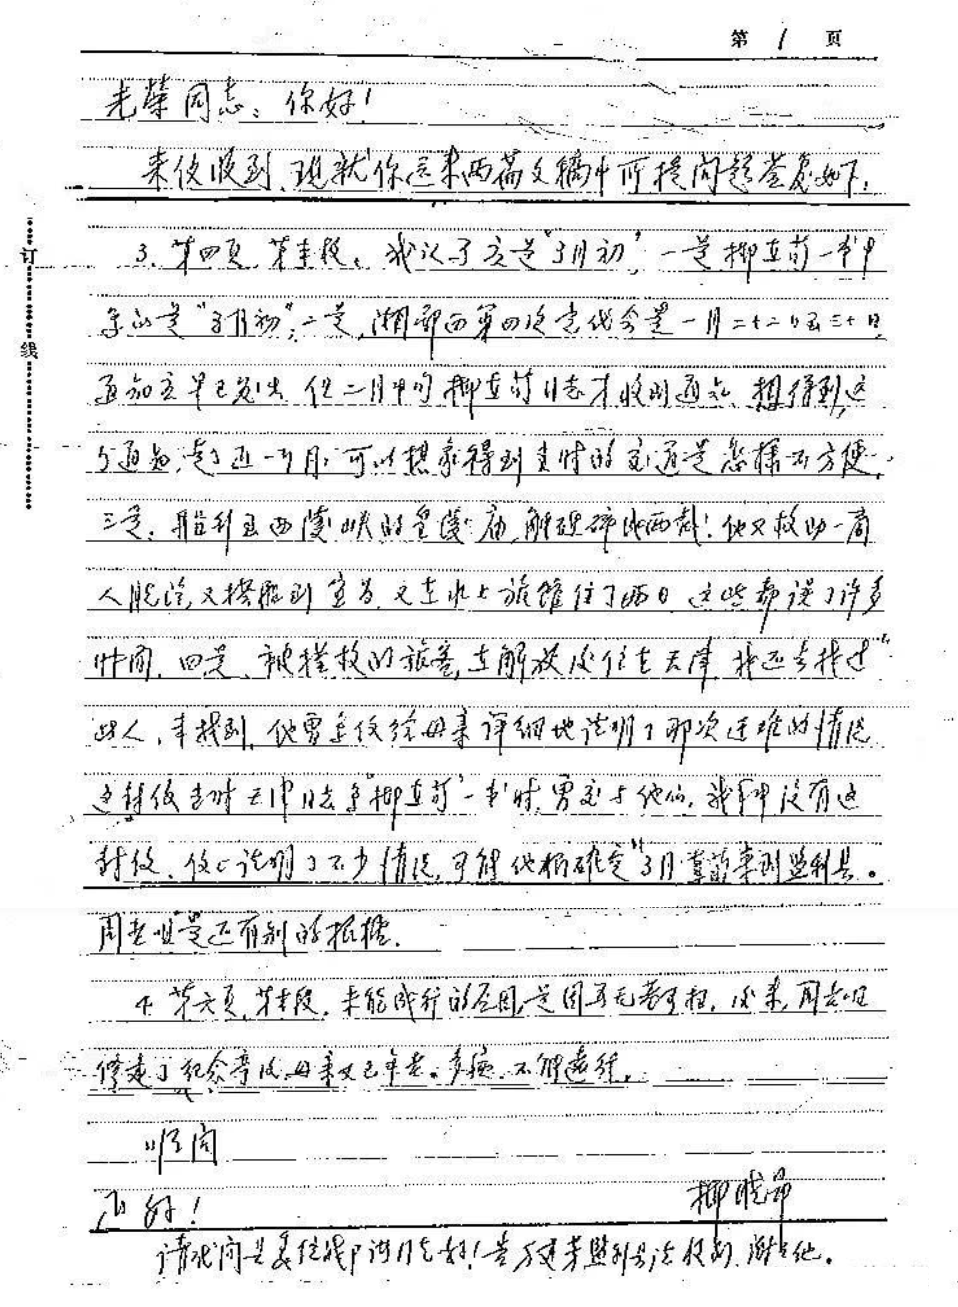 第 1 页
光荣同志：你好！
来信收到，现就你送来两篇文稿中所提问题答复如下：
订
线
3. 第四页，第末段。我认为应是“3月初”，一是柳直荀一书中
写的是“3月初”；二是，湘鄂西第四次党代会是一月二十二日至三十日，
通知应早已发出，但二月中旬柳直荀同志才收到通知，想得到，这
个通知，走了近一个月，可以想象得到当时的交通是怎样不方便，
三是，船到至西陵峡的皇陵庙，触礁碎成两截！他又救助一商
人脱险，又搭船到宜昌，又在水上旅馆住了两日，这些都误了许多
时间，四是，被搭救的旅客，在解放后住在天津，我还去找过
此人，未找到，他曾写信给母亲详细地说明了那次遇难的情况
这封信当时 同志写“柳直荀”一书时，曾交与他们，我手中没有这
封信，信上说明了不少情况，可能他们确定“3月直荀来到监利县。
周老咀是还有别的根据。
4. 第六页，第末段，未能成行的原因，是因 ，后来，周老咀
修建了纪念亭后，母亲又已年老。多病，不能远行。
顺问
近好！
柳晓昂
请代问县委统战部 同志好！ 监利县 收到，谢谢他。